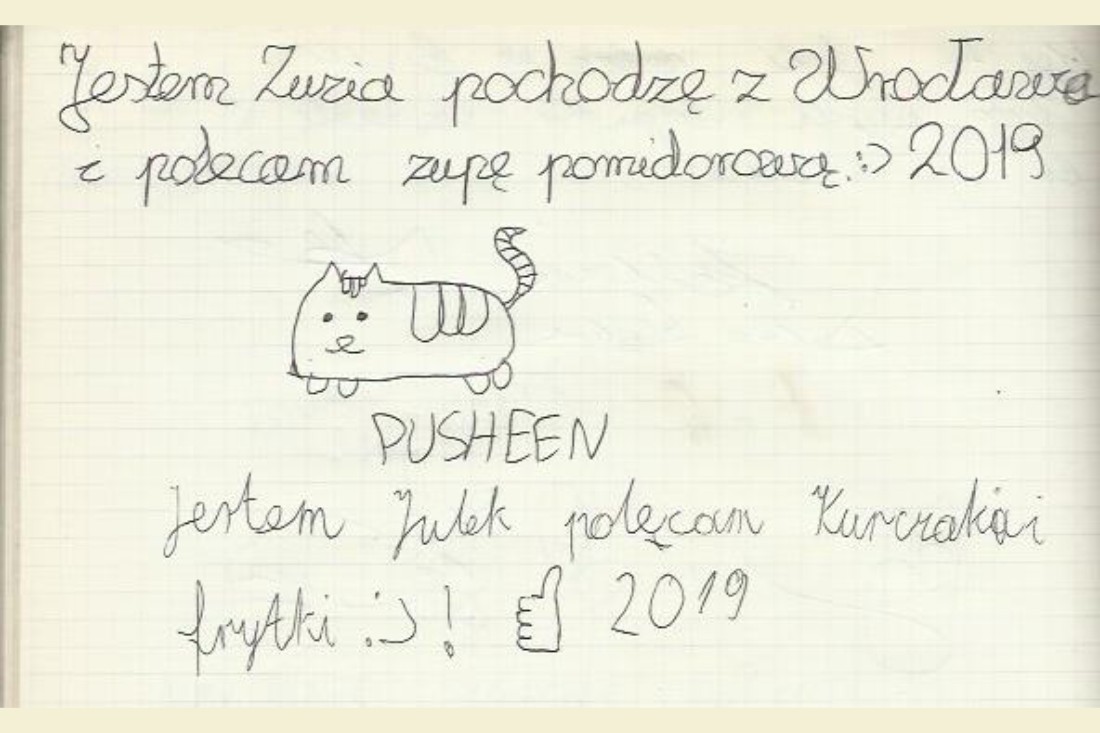 Jestem Zuzia pochodzę z Wrocławia
i polecam zupę pomidorową. :) 2019
PUSHEEN
Jestem Julek polęcam Kurczaka i
frytki :)! 2019